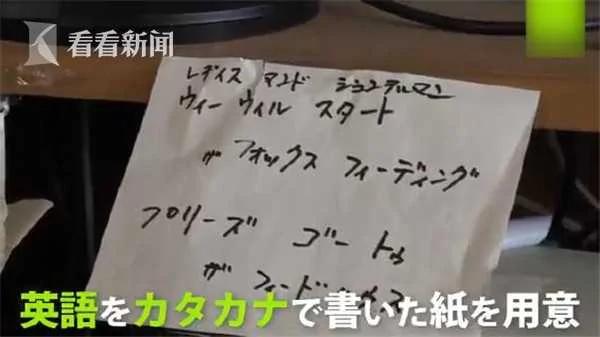 看看新闻
レディス アンド ジェントルマン
ウィー ウィル スタート
ザ フォックス フィーディング
プリーズ ゴー トゥ
ザ
英語をカタカナで書いた紙を用意